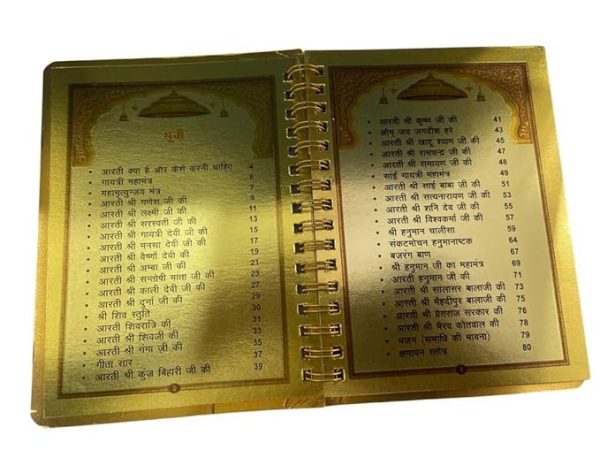 सूची
• आरती क्या है और कैसे करनी चाहिए 4
• गायत्री महामंत्र 6
• महामृत्युन्जय मंत्र 7
• आरती श्री गणेश जी की 9
• आरती श्री लक्ष्मी जी की 11
• आरती श्री सरस्वती जी की 13
• आरती श्री गायत्री देवी जी की 15
• आरती श्री मनसा देवी जी की 17
• आरती श्री वैष्णों देवी की 19
• आरती श्री अम्बा जी की 21
• आरती श्री सन्तोषी माता जी की 23
• आरती श्री काली देवी जी की 25
• आरती श्री दुर्गा जी की 27
• श्री शिव स्तुति 29
• आरती शिवरात्रि की 30
• आरती श्री शिवजी की 31
• आरती श्री गंगा जी की 35
• गीता सार 37
• आरती श्री कुंज बिहारी जी की 39
• आरती श्री कृष्ण जी की 41
• ओम् जय जगदीश हरे 43
• आरती श्री खाटू श्याम जी की 45
• आरती श्री रामचन्द्र जी की 47
• आरती श्री रामायण जी की 48
• साई गायत्री महामंत्र 49
• आरती श्री साई बाबा जी की 51
• आरती श्री सत्यनारायण जी की 53
• आरती श्री शनि देव जी की 55
• आरती श्री विश्वकर्मा जी की 57
• श्री हनुमान चालीसा 59
• संकटमोचन हनुमानाष्टक 64
• बजरंग बाण 67
• श्री हनुमान जी का महामंत्र 69
• आरती हनुमान जी की 71
• आरती श्री सालासर बालाजी की 73
• आरती श्री मेंहदीपुर बालाजी की 75
• आरती श्री प्रेतराज सरकार की 76
• आरती श्री भैरव कोतवाल की 78
• भजन (समाधि की भावना) 79
• क्षमापन स्तोत्र 80
3